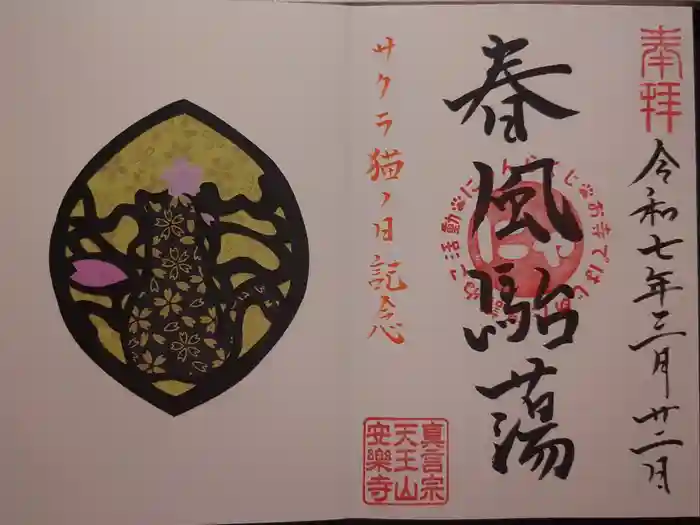 奉拝
令和七年三月廿二月
春風駘蕩
サクラ猫ノ日記念
真言宗
天王山
安樂寺